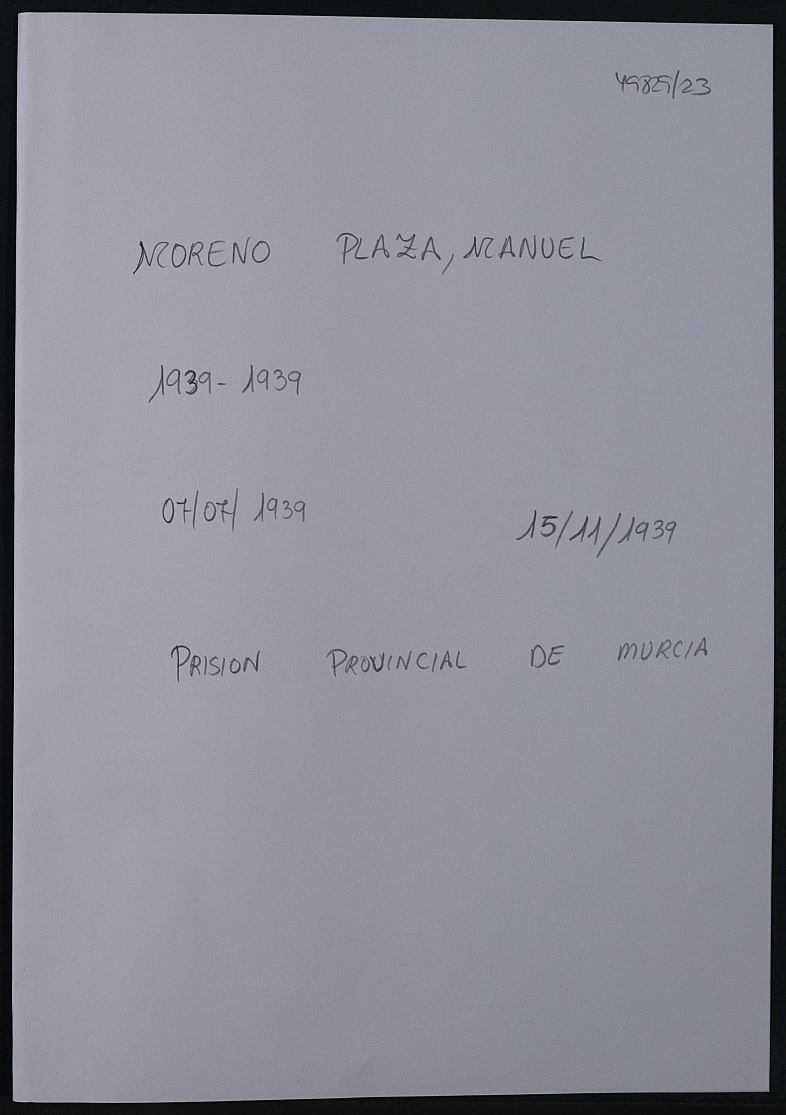 49829/23
MORENO PLAZA, MANUEL
1939- 1939
07/07/ 1939 15/11/1939
PRISION PROVINCIAL DE MURCIA